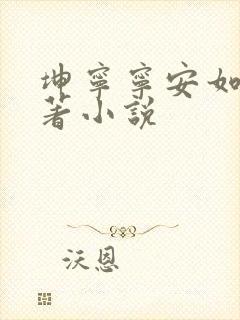 坤寧寧安如
著小說
沃恩